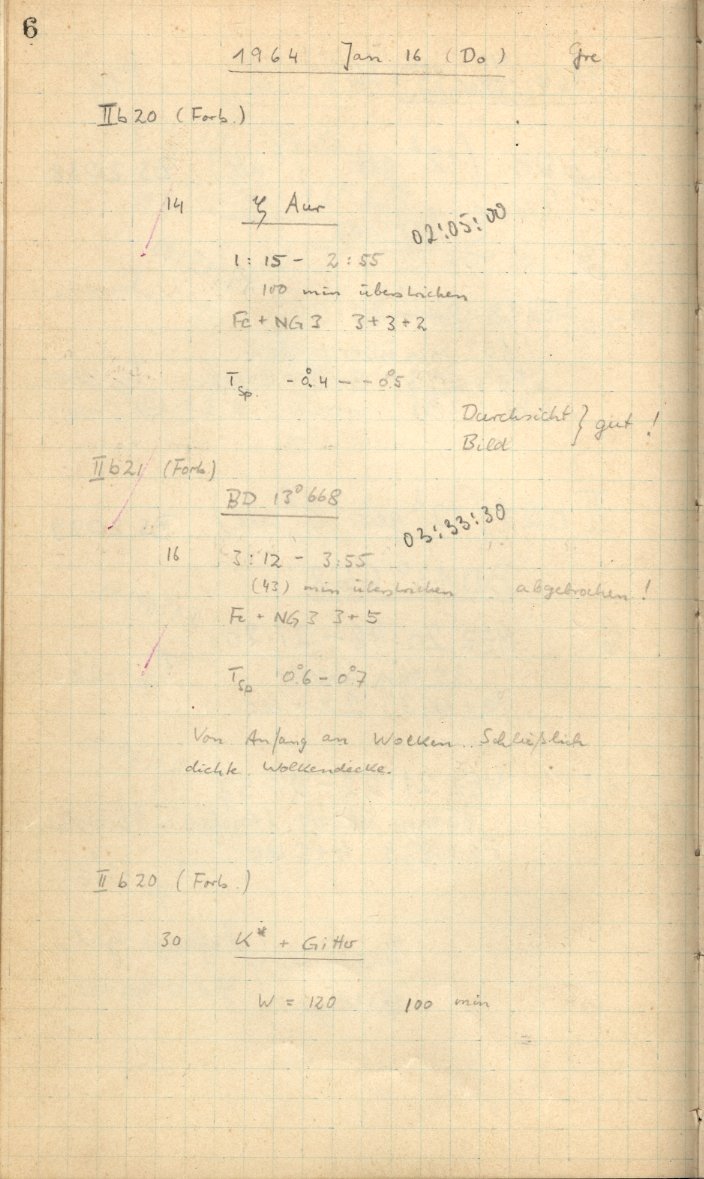 6
1964 Jan. 16 (Do) Gre
II b 20 (Forb.)
14 ζ Aur
02:05:00
1:15 - 2:55
100 min überstrichen
Fe + NG 3 3+3+2
T Sp. -0°.4 - -0°.5
Durchsicht } gut !
Bild
II b 21 (Forb)
BD 13° 668
03:33:30
16 3:12 - 3:55
(43) min überstrichen abgebrochen !
Fe + NG 3 3+5
T Sp 0°.6 - 0°.7
Von Anfang an Wolken. Schließlich
dichte Wolkendecke.
II b 20 (Forb.)
30 K* + Gitter
W = 120 100 min